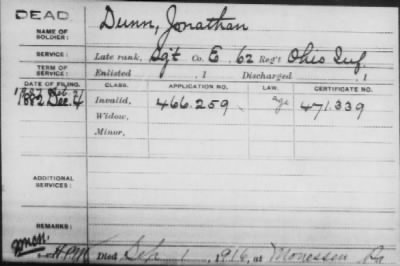 DEAD
NAME OF SOLDIER: Dunn, Jonathan
SERVICE: Late rank, Sgt Co. E, 62 Reg't Ohio Inf.
TERM OF SERVICE: Enlisted , 1 Discharged , 1
DATE OF FILING. CLASS. APPLICATION NO. LAW. CERTIFICATE NO.
1882 Dec. 4 Invalid, 466.259 age 471.339
Widow,
Minor,
ADDITIONAL SERVICES:
REMARKS:
Died Sep 1, 1916, at Monessen Pa